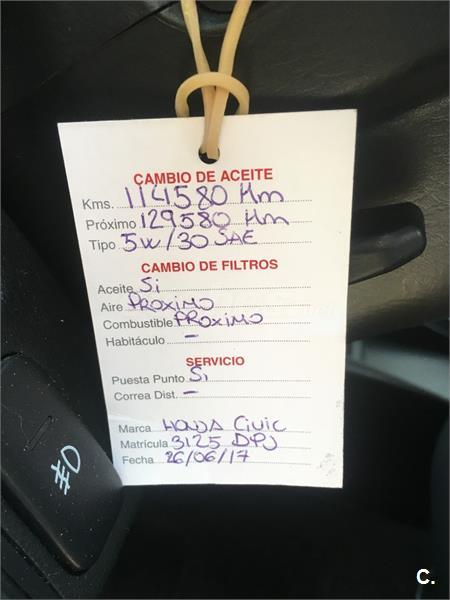 CAMBIO DE ACEITE
Kms. 114580 Km
Próximo 129580 Km
Tipo 5W/30 SAE
CAMBIO DE FILTROS
Aceite Si
Aire PROXIMO
Combustible PROXIMO
Habitáculo -
SERVICIO
Puesta Punto Si
Correa Dist. -
Marca HONDA Civic
Matrícula 3125 DPJ
Fecha 26/06/17
C.